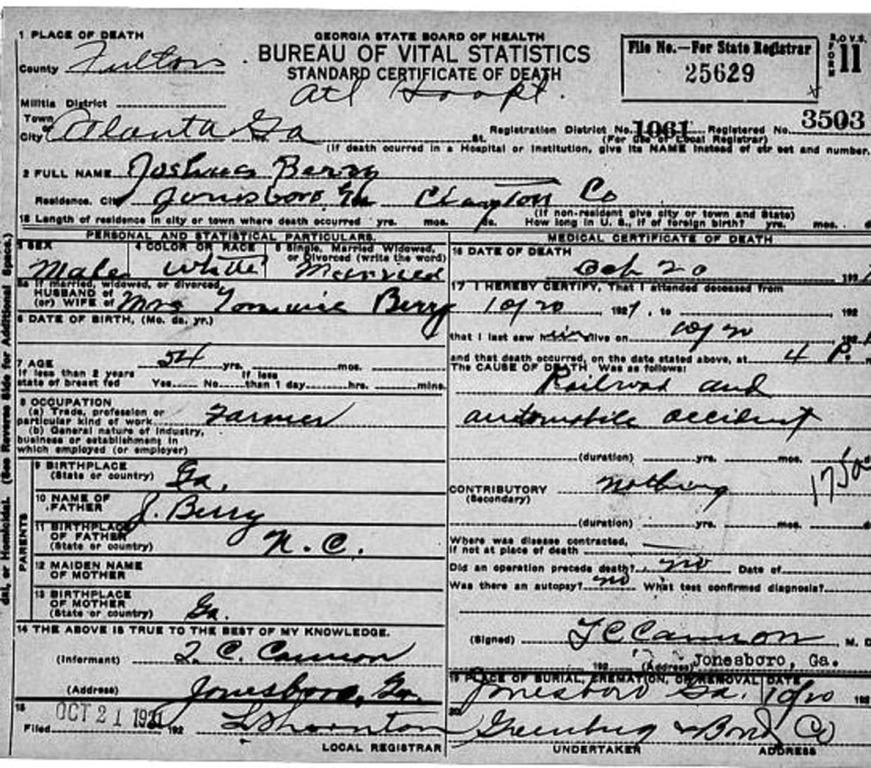 1 PLACE OF DEATH
GEORGIA STATE BOARD OF HEALTH
BUREAU OF VITAL STATISTICS
STANDARD CERTIFICATE OF DEATH
File No.—For State Registrar
25629
FORM 11
County Fulton
Atl Hospt.
Militia District
Town
City Atlanta Ga St.
Registration District No. 1061 Registered No. 3503
(For Use of Local Registrar)
(If death occurred in a Hospital or Institution, give its NAME instead of street and number.
2 FULL NAME Joshua Berry
Residence. City Jonesboro Ga Clayton Co
(If non-resident give city or town and State)
Length of residence in city or town where death occurred yrs. mos. ds. How long in U. S., if of foreign birth? yrs. mos. d
PERSONAL AND STATISTICAL PARTICULARS.
3 SEX
Male
4 COLOR OR RACE
White
5 Single, Married Widowed,
or Divorced (write the word)
Married
5a If married, widowed, or divorced
HUSBAND OF
(or) WIFE OF Mrs Tommie Berry
6 DATE OF BIRTH, (Mo. da. yr.)
7 AGE 54 yrs. mos.
If less than 2 years
state of breast fed Yes No
If less
than 1 day hrs. mins.
8 OCCUPATION
(a) Trade, profession or
particular kind of work Farmer
(b) General nature of industry,
business or establishment in
which employed (or employer)
PARENTS
9 BIRTHPLACE
(State or country) Ga.
10 NAME OF
FATHER J. Berry
11 BIRTHPLACE
OF FATHER
(State or country) N. C.
12 MAIDEN NAME
OF MOTHER
13 BIRTHPLACE
OF MOTHER
(State or country) Ga.
14 THE ABOVE IS TRUE TO THE BEST OF MY KNOWLEDGE.
(Informant) T. C. Cannon
(Address) Jonesboro, Ga.
15
Filed OCT 21 192
LOCAL REGISTRAR
MEDICAL CERTIFICATE OF DEATH
16 DATE OF DEATH
Oct 20 192
17 I HEREBY CERTIFY, That I attended deceased from
10/20 1921, to 192
that I last saw him alive on 10/20 192
and that death occurred, on the date stated above, at 4 P. m
The CAUSE OF DEATH Was as follows:
Railroad and
automobile accident
(duration) yrs. mos. d
CONTRIBUTORY nothing
(Secondary)
(duration) yrs. mos. d
Where was disease contracted,
if not at place of death
Did an operation precede death? no Date of
Was there an autopsy? no What test confirmed diagnosis?
(Signed) T C Cannon M. D
192 (Address) Jonesboro, Ga.
19 PLACE OF BURIAL, CREMATION, OR REMOVAL DATE
Jonesboro Ga. 10/20 192
20
Greenberg & Bond Co
UNDERTAKER ADDRESS
dal, or Homicidal. (See Reverse Side for Additional Space.)